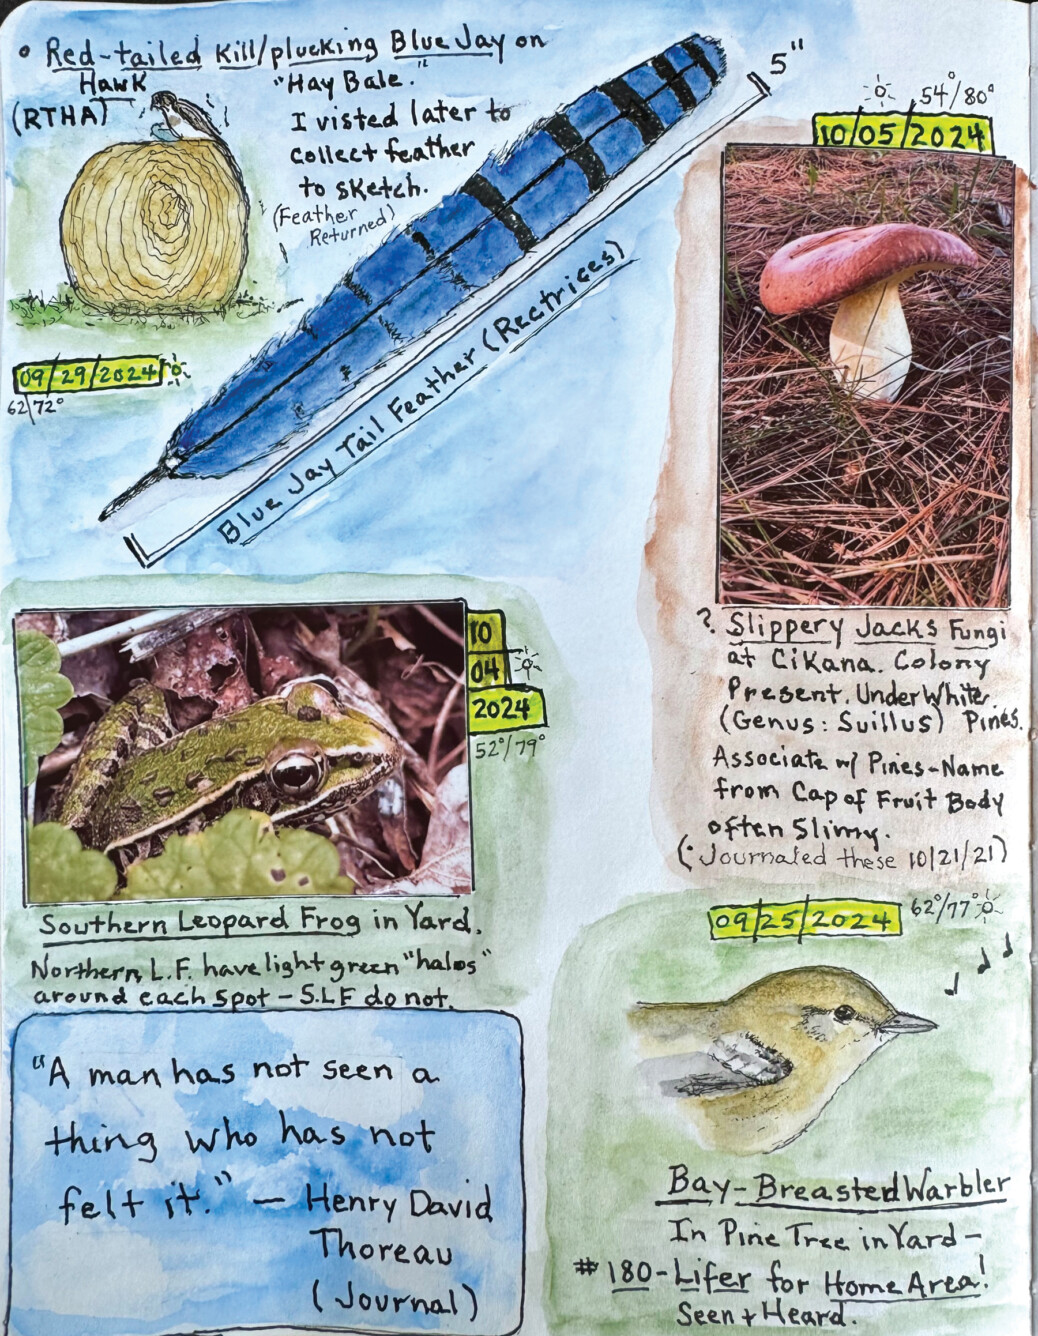 • Red-tailed Kill/plucking Blue Jay on
Hawk "Hay Bale."
(RTHA)
I visted later to
collect feather
to sketch.
(Feather
Returned)
5"
Blue Jay Tail Feather (Rectrices)
09/29/2024
62/72°
54°/80°
10/05/2024
? Slippery Jacks Fungi
at Cikana. Colony
Present. Under White
(Genus: Suillus) Pines.
Associate w/ Pines-Name
from Cap of Fruit Body
often Slimy.
(• Journaled these 10/21/21)
10
04
2024
52°/79°
Southern Leopard Frog in Yard.
Northern L.F. have light green "halos"
around each spot - S.LF do not.
"A man has not seen a
thing who has not
felt it." — Henry David
Thoreau
(Journal)
09/25/2024
62°/77°
Bay-Breasted Warbler
In Pine Tree in Yard -
#180-Lifer for Home Area!
Seen + Heard.